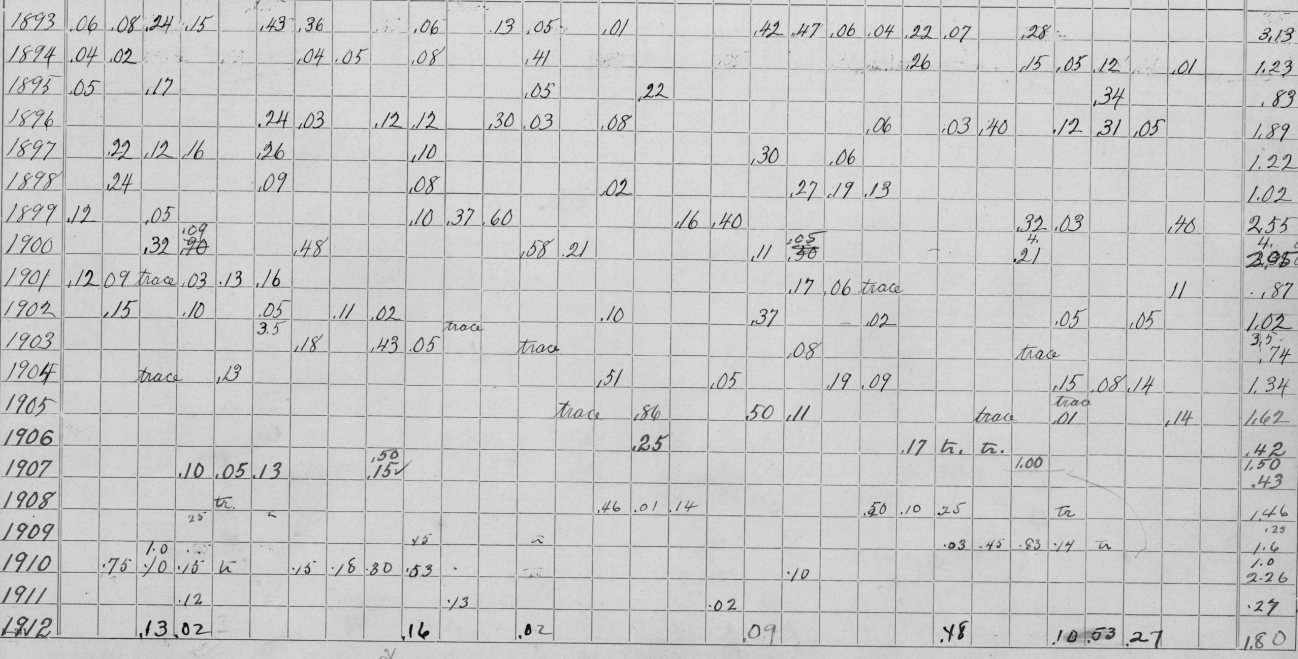 1893 .06 .08 .24 .15 .43 .36 .06 .13 .05 .01 .42 .47 .06 .04 .22 .07 .28 3.13
1894 .04 .02 .04 .05 .08 .41 .26 .15 .05 .12 .01 1.23
1895 .05 .17 .05 .22 .34 .83
1896 .24 .03 .12 .12 .30 .03 .08 .06 .03 .40 .12 .31 .05 1.89
1897 .22 .12 .16 .26 .10 .30 .06 1.22
1898 .24 .09 .08 .02 .27 .19 .13 1.02
1899 .12 .05 .10 .37 .60 .16 .40 .32 .03 .40 2.55
.09 .05 4. 4.
1900 .32 .48 .58 .21 .11 .21
1901 .12 09 trace .03 .13 .16 .17 .06 trace 11 .87
1902 .15 .10 .05 .11 .02 .10 .37 .02 .05 .05 1.02
3.5 trace 3.5
1903 .18 .43 .05 trace .08 trace .74
1904 trace .13 .51 .05 .19 .09 .15 .08 .14 1.34
trace
1905 trace .86 .50 .11 trace .01 .14 1.62
1906 .25 .17 tr. tr. .42
.50 1.00 1.50
1907 .10 .05 .13 .15✓ .43
1908 tr. .46 .01 .14 .50 .10 .25 tr 1.46
25 .25
1909 .03 .45 .83 .14 tr 1.6
1.0 1.0
1910 .75 .10 .15 tr .15 .18 .30 .53 .10 2.26
1911 .12 .13 .02 .27
1912 .13 .02 .16 .02 .09 .48 .10 .53 .27 1.80